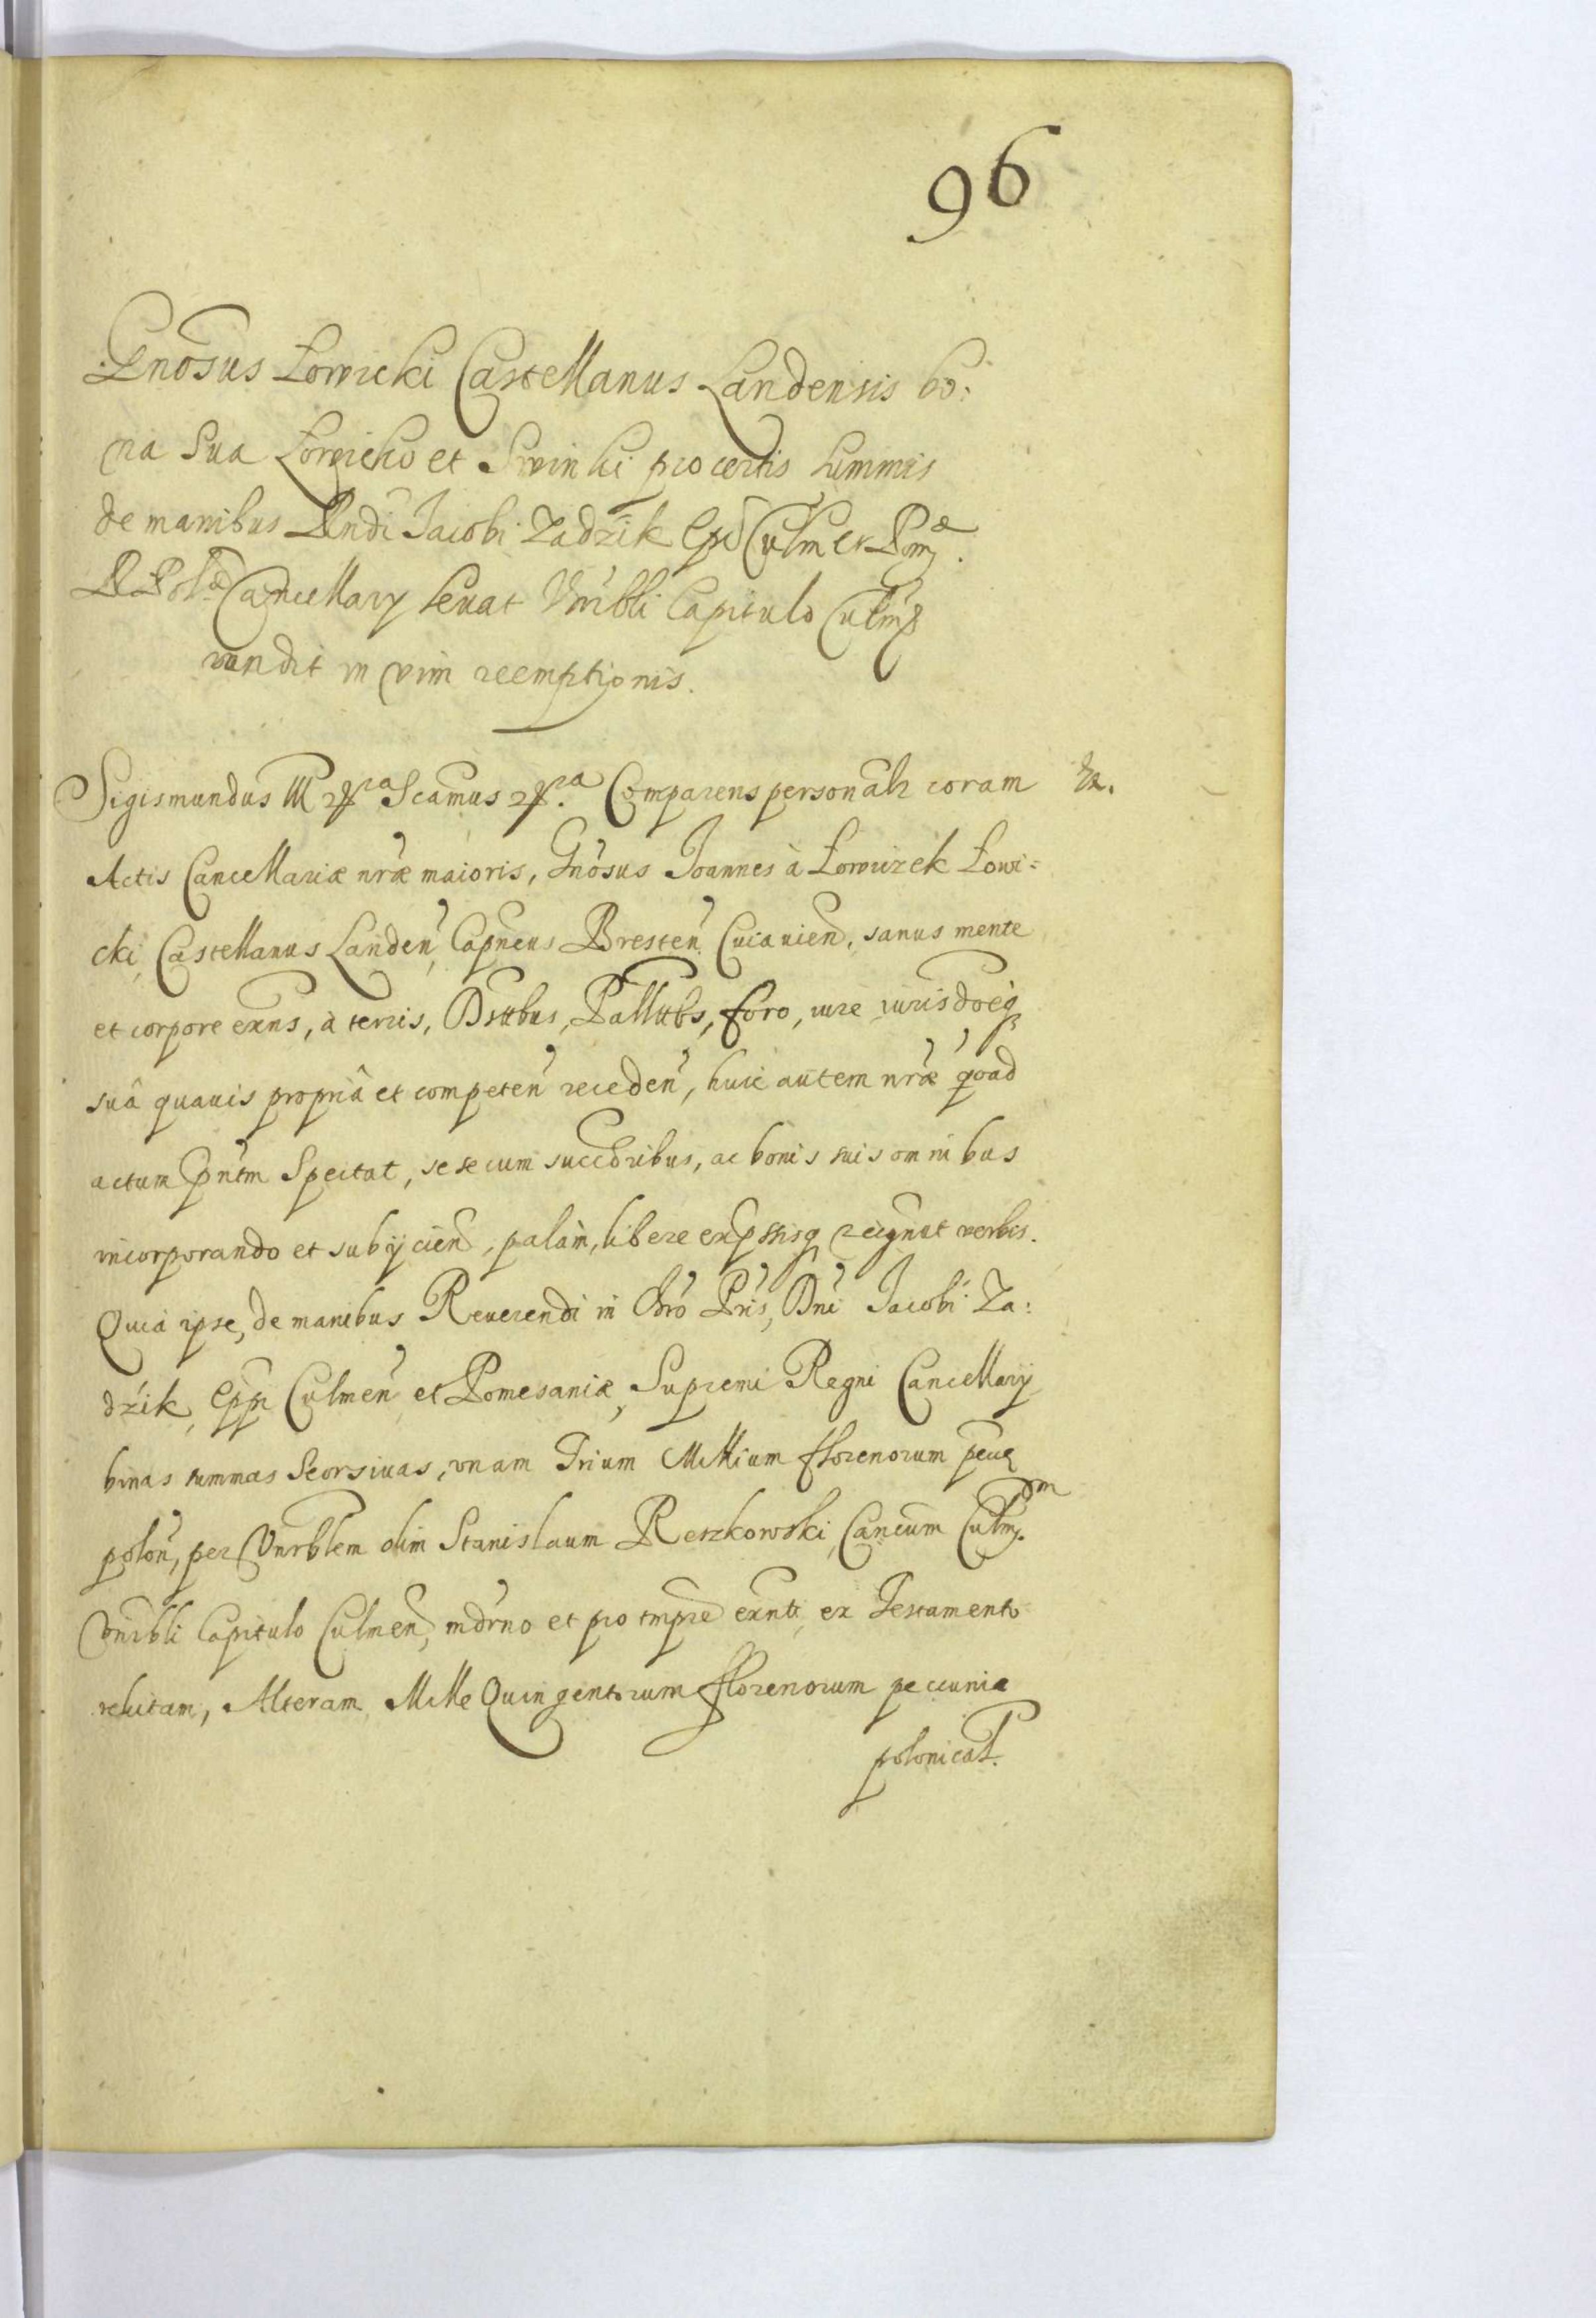 96
Gnosus Łowicki Castellanus Landensis bo:
na sua Łowicko et Swinki pro certis summis
de manibus Rndi Jacobi Zadzik Epi Culm et Pom
Cancellary levat Vnrbli Capitulo Culm
vendit in vim reemptionis.
Sigismundus III Scamus Comparens personalr coram
Actis Cancellariæ nræ maioris, Gnosus Joannes à Łowiczek Łowi=
cki, Castellanus Landen, Capneus Bresten Cuiavien, sanus mente
et corpore exns, à terris, Dsttbus, Pallttbs, foro, iure iurisdoeq
suâ quavis propriâ et competen receden, huic autem nræ quoad
actum pntm Spectat, se se cum succoribus, ac bonis suis omnibus
incorporando et subijcien, palam, libere expssisq recgnut verbis.
Quia ipse, de manibus Reuerendi in Chro Pris, Dni Jacobi Za:
dzik, Eppi Culmen et Pomesaniæ, Supremi Regni Cancellary
binas summas Seorsiuas, vnam Trium Millium fflorenorum pecu
polon, per Vnrblem olim Stanislaum Reszkowski, Cancum Culm
Vnrbli Capitulo Culmen, mdrno et pro tmpre exnti, ex Testamento
relictam, Alteram Mille Quingentorum fflorenorum pecuniæ
polonical.